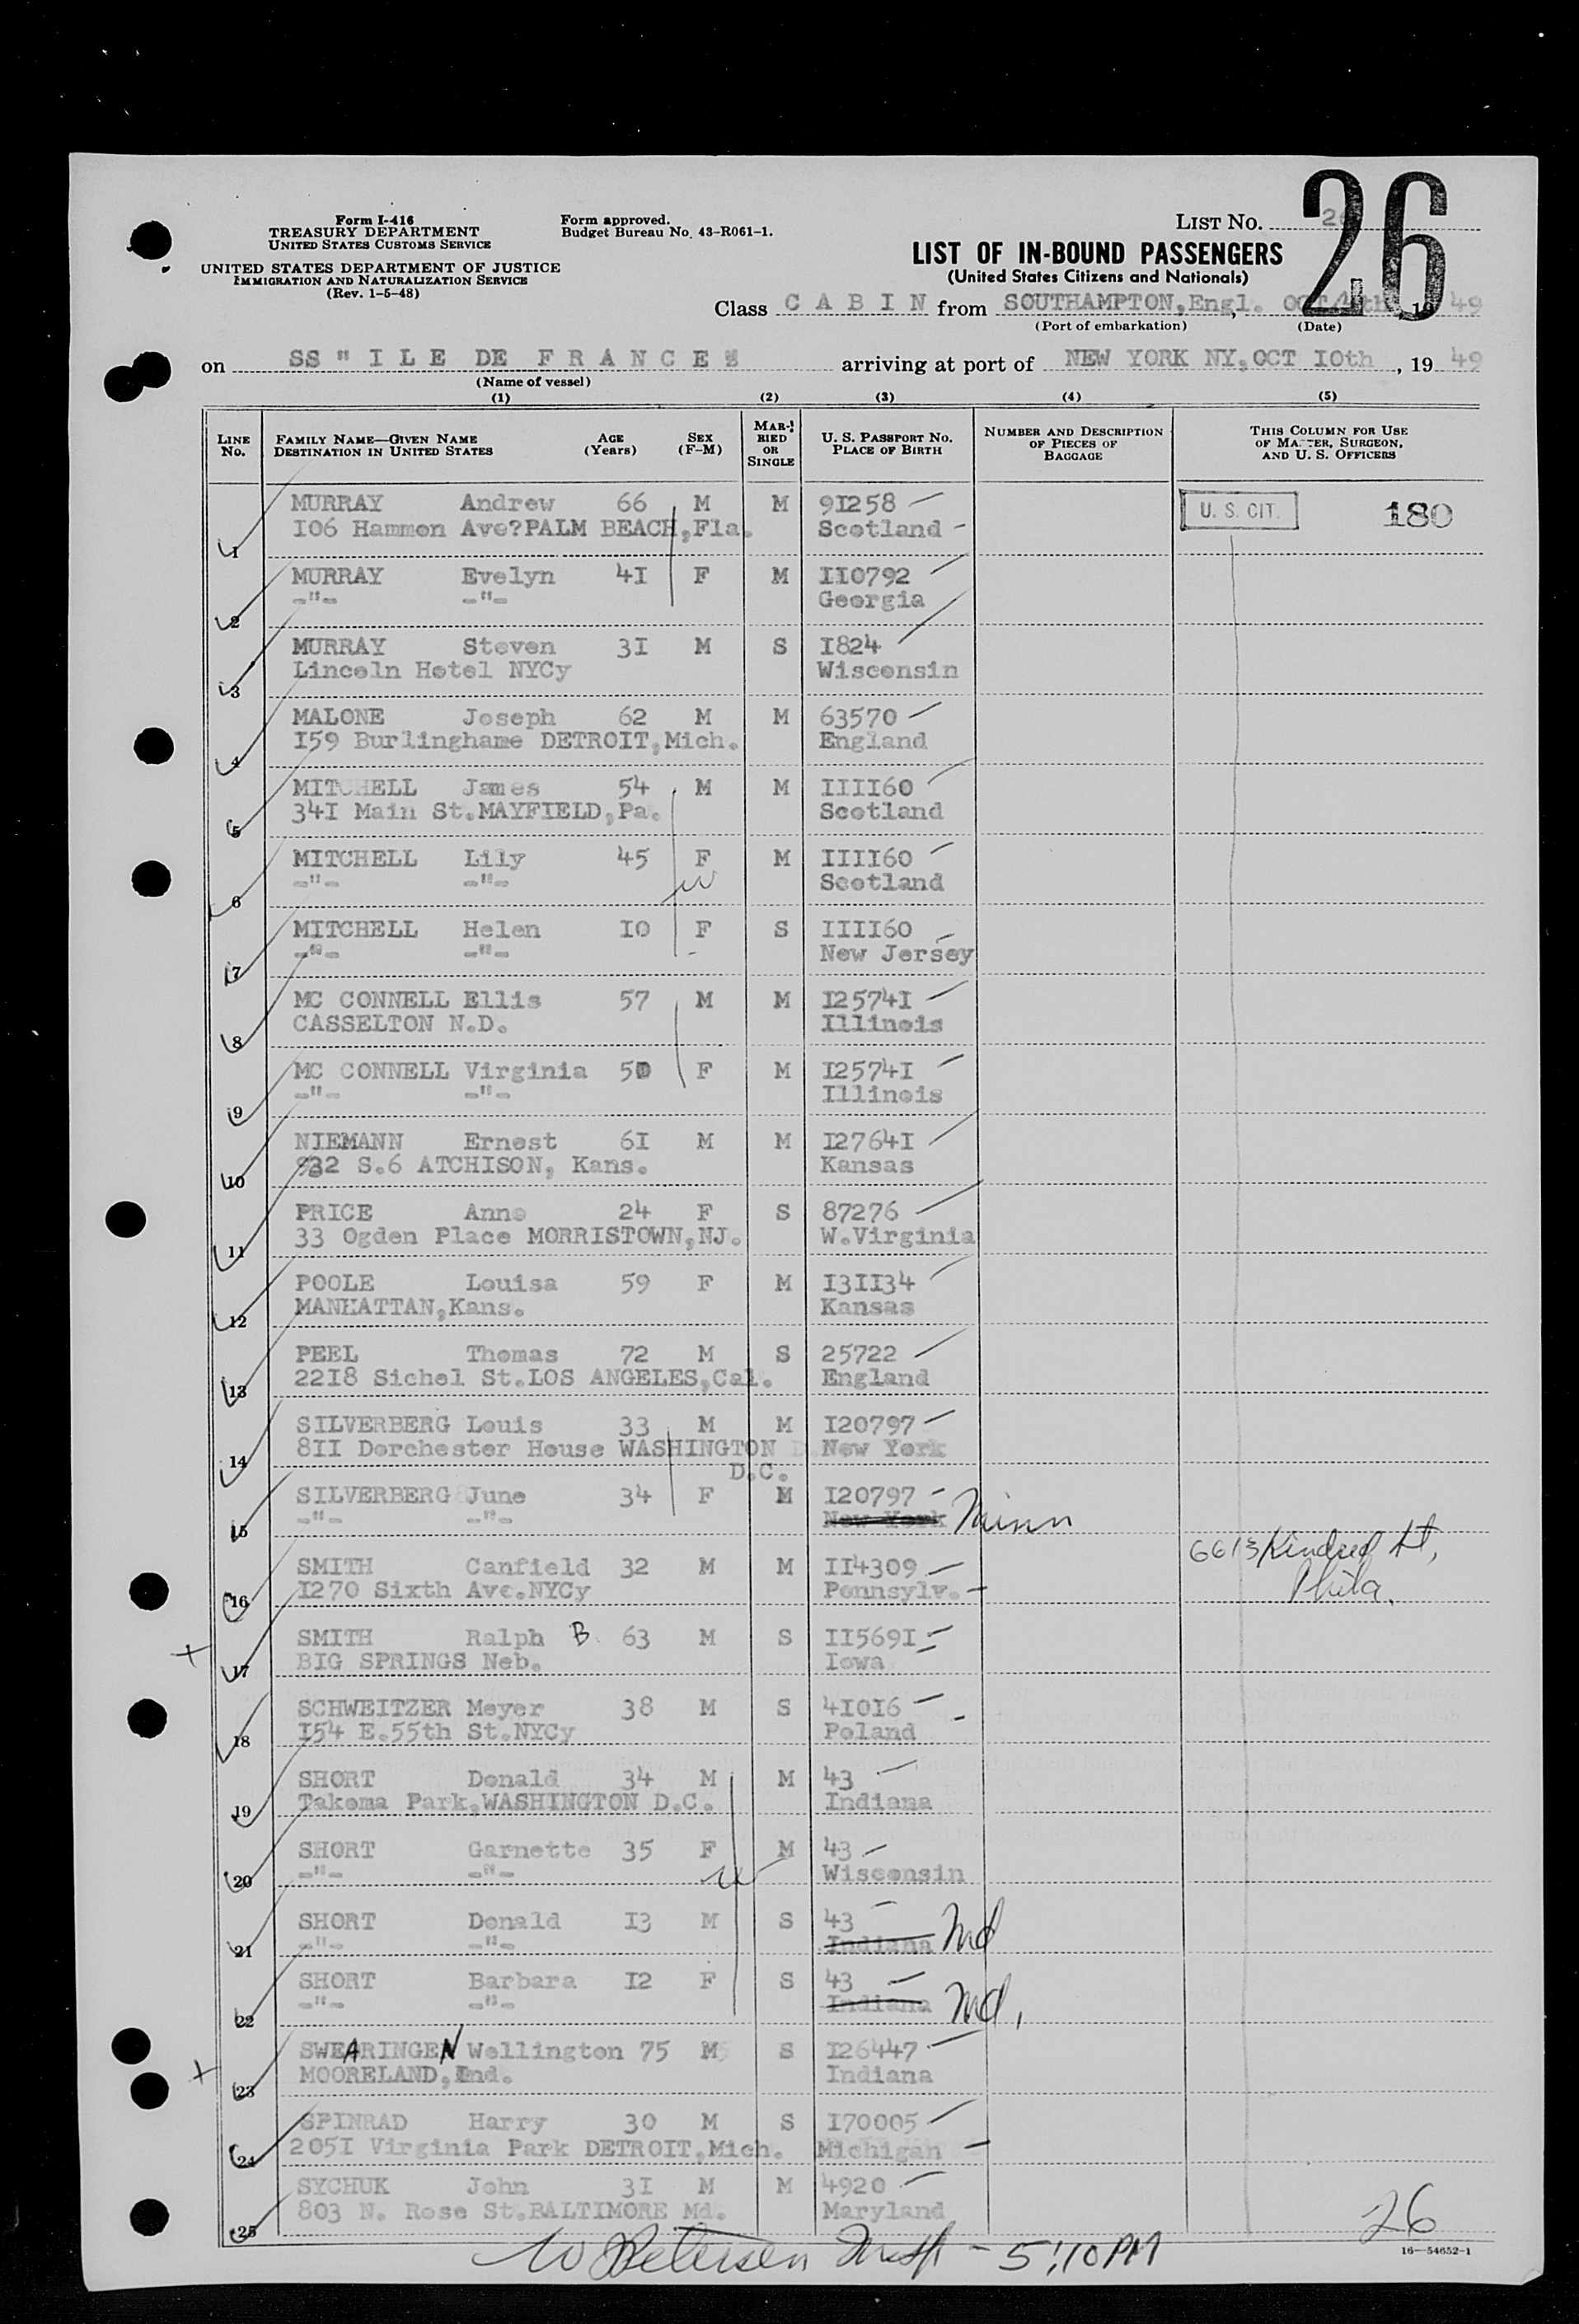 26
Form I-416
TREASURY DEPARTMENT
UNITED STATES CUSTOMS SERVICE
UNITED STATES DEPARTMENT OF JUSTICE
IMMIGRATION AND NATURALIZATION SERVICE
(Rev. 1-5-48)
Form approved.
Budget Bureau No. 43-R061-1.
LIST No. 26
LIST OF IN-BOUND PASSENGERS
(United States Citizens and Nationals)
Class C A B I N from SOUTHAMPTON,Engl. , 19 49
(Port of embarkation) (Date)
on SS " I L E DE F R A N C E " arriving at port of NEW YORK NY,OCT IOth , 19 49
(Name of vessel)
(1) (2) (3) (4) (5)
LINE No. FAMILY NAME—GIVEN NAME DESTINATION IN UNITED STATES AGE (Years) SEX (F-M) MARRIED OR SINGLE U. S. PASSPORT No. PLACE OF BIRTH NUMBER AND DESCRIPTION OF PIECES OF BAGGAGE THIS COLUMN FOR USE OF MASTER, SURGEON, AND U. S. OFFICERS
MURRAY Andrew 66 M M 9I258 U. S. CIT. 180
1 I06 Hammon Ave?PALM BEACH,Fla. Scotland
MURRAY Evelyn 4I F M II0792
2 -"- -"- Georgia
MURRAY Steven 3I M S I824
3 Lincoln Hotel NYCy Wisconsin
MALONE Joseph 62 M M 63570
4 I59 Burlinghame DETROIT,Mich. England
MITCHELL James 54 M M IIII60
5 34I Main St.MAYFIELD,Pa. Scotland
MITCHELL Lily 45 F M IIII60
6 -"- -"- Scotland
MITCHELL Helen IO F S IIII60
7 -"- -"- New Jersey
MC CONNELL Ellis 57 M M I2574I
8 CASSELTON N.D. Illinois
MC CONNELL Virginia 50 F M I2574I
9 -"- -"- Illinois
NIEMANN Ernest 6I M M I2764I
10 932 S.6 ATCHISON, Kans. Kansas
PRICE Anne 24 F S 87276
11 33 Ogden Place MORRISTOWN,NJ. W.Virginia
POOLE Louisa 59 F M I3II34
12 MANHATTAN,Kans. Kansas
PEEL Thomas 72 M S 25722
13 22I8 Sichel St.LOS ANGELES,Cal. England
SILVERBERG Louis 33 M M I20797
14 8II Dorchester House WASHINGTON New York
D.C.
SILVERBERG June 34 F M I20797
15 -"- -"- New York Minn
SMITH Canfield 32 M M II4309 6613 Kindred St,
16 I270 Sixth Ave.NYCy Pennsylv. Phila.
SMITH Ralph B. 63 M S II569I
17 BIG SPRINGS Neb. Iowa
SCHWEITZER Meyer 38 M S 4IOI6
18 I54 E.55th St.NYCy Poland
SHORT Donald 34 M M 43
19 Takoma Park,WASHINGTON D.C. Indiana
SHORT Garnette 35 F M 43
20 -"- -"- Wisconsin
SHORT Donald I3 M S 43
21 -"- -"- Indiana Md
SHORT Barbara I2 F S 43
22 -"- -"- Indiana Md.
SWEARINGEN Wellington 75 M S I26447
23 MOORELAND,Ind. Indiana
SPINRAD Harry 30 M S I70005
24 205I Virginia Park DETROIT,Mich. Michigan
SYCHUK John 3I M M 4920
25 803 N. Rose St.BALTIMORE Md. Maryland
26
W Petersen Insp - 5:10 PM
16—54652-1